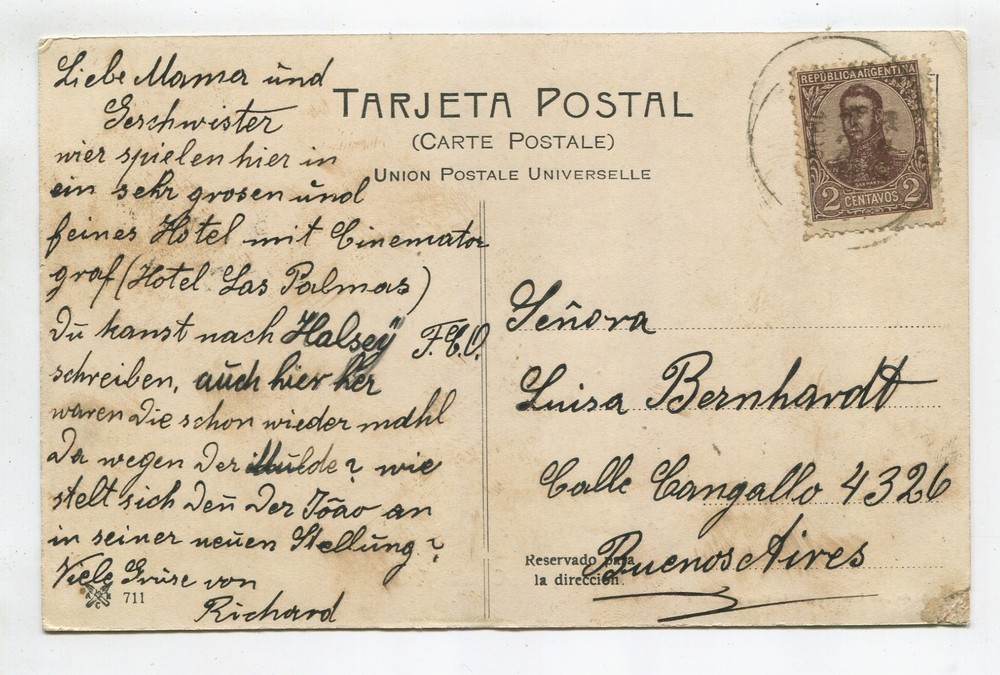 Liebe Mama und
Geschwister
wier spielen hier in
ein sehr grosen und
feines Hotel mit Cinemator
graf (Hotel Las Palmas)
Du kanst nach Halsey F.C.O.
schreiben, auch hier her
waren Die schon wieder mahl
Da wegen Der Mulde? wie
stelt sich Deñ Der João an
in seiner neuen Stellung?
Viele Grüse von
Richard
711
TARJETA POSTAL
(CARTE POSTALE)
UNION POSTALE UNIVERSELLE
REPÚBLICA ARGENTINA
2 CENTAVOS 2
Señora
Luisa Bernhardt
Calle Cangallo 4326
Buenos Aires
Reservado para
la dirección.